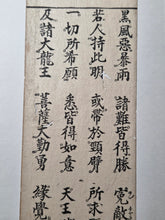 黑風惡暴雨 諸難皆得勝 寃敵
若人持此明 或帶於頸臂 所求
一切所希願 悉皆得如意 天王
及諸大龍王 菩薩大勤勇 緣覺